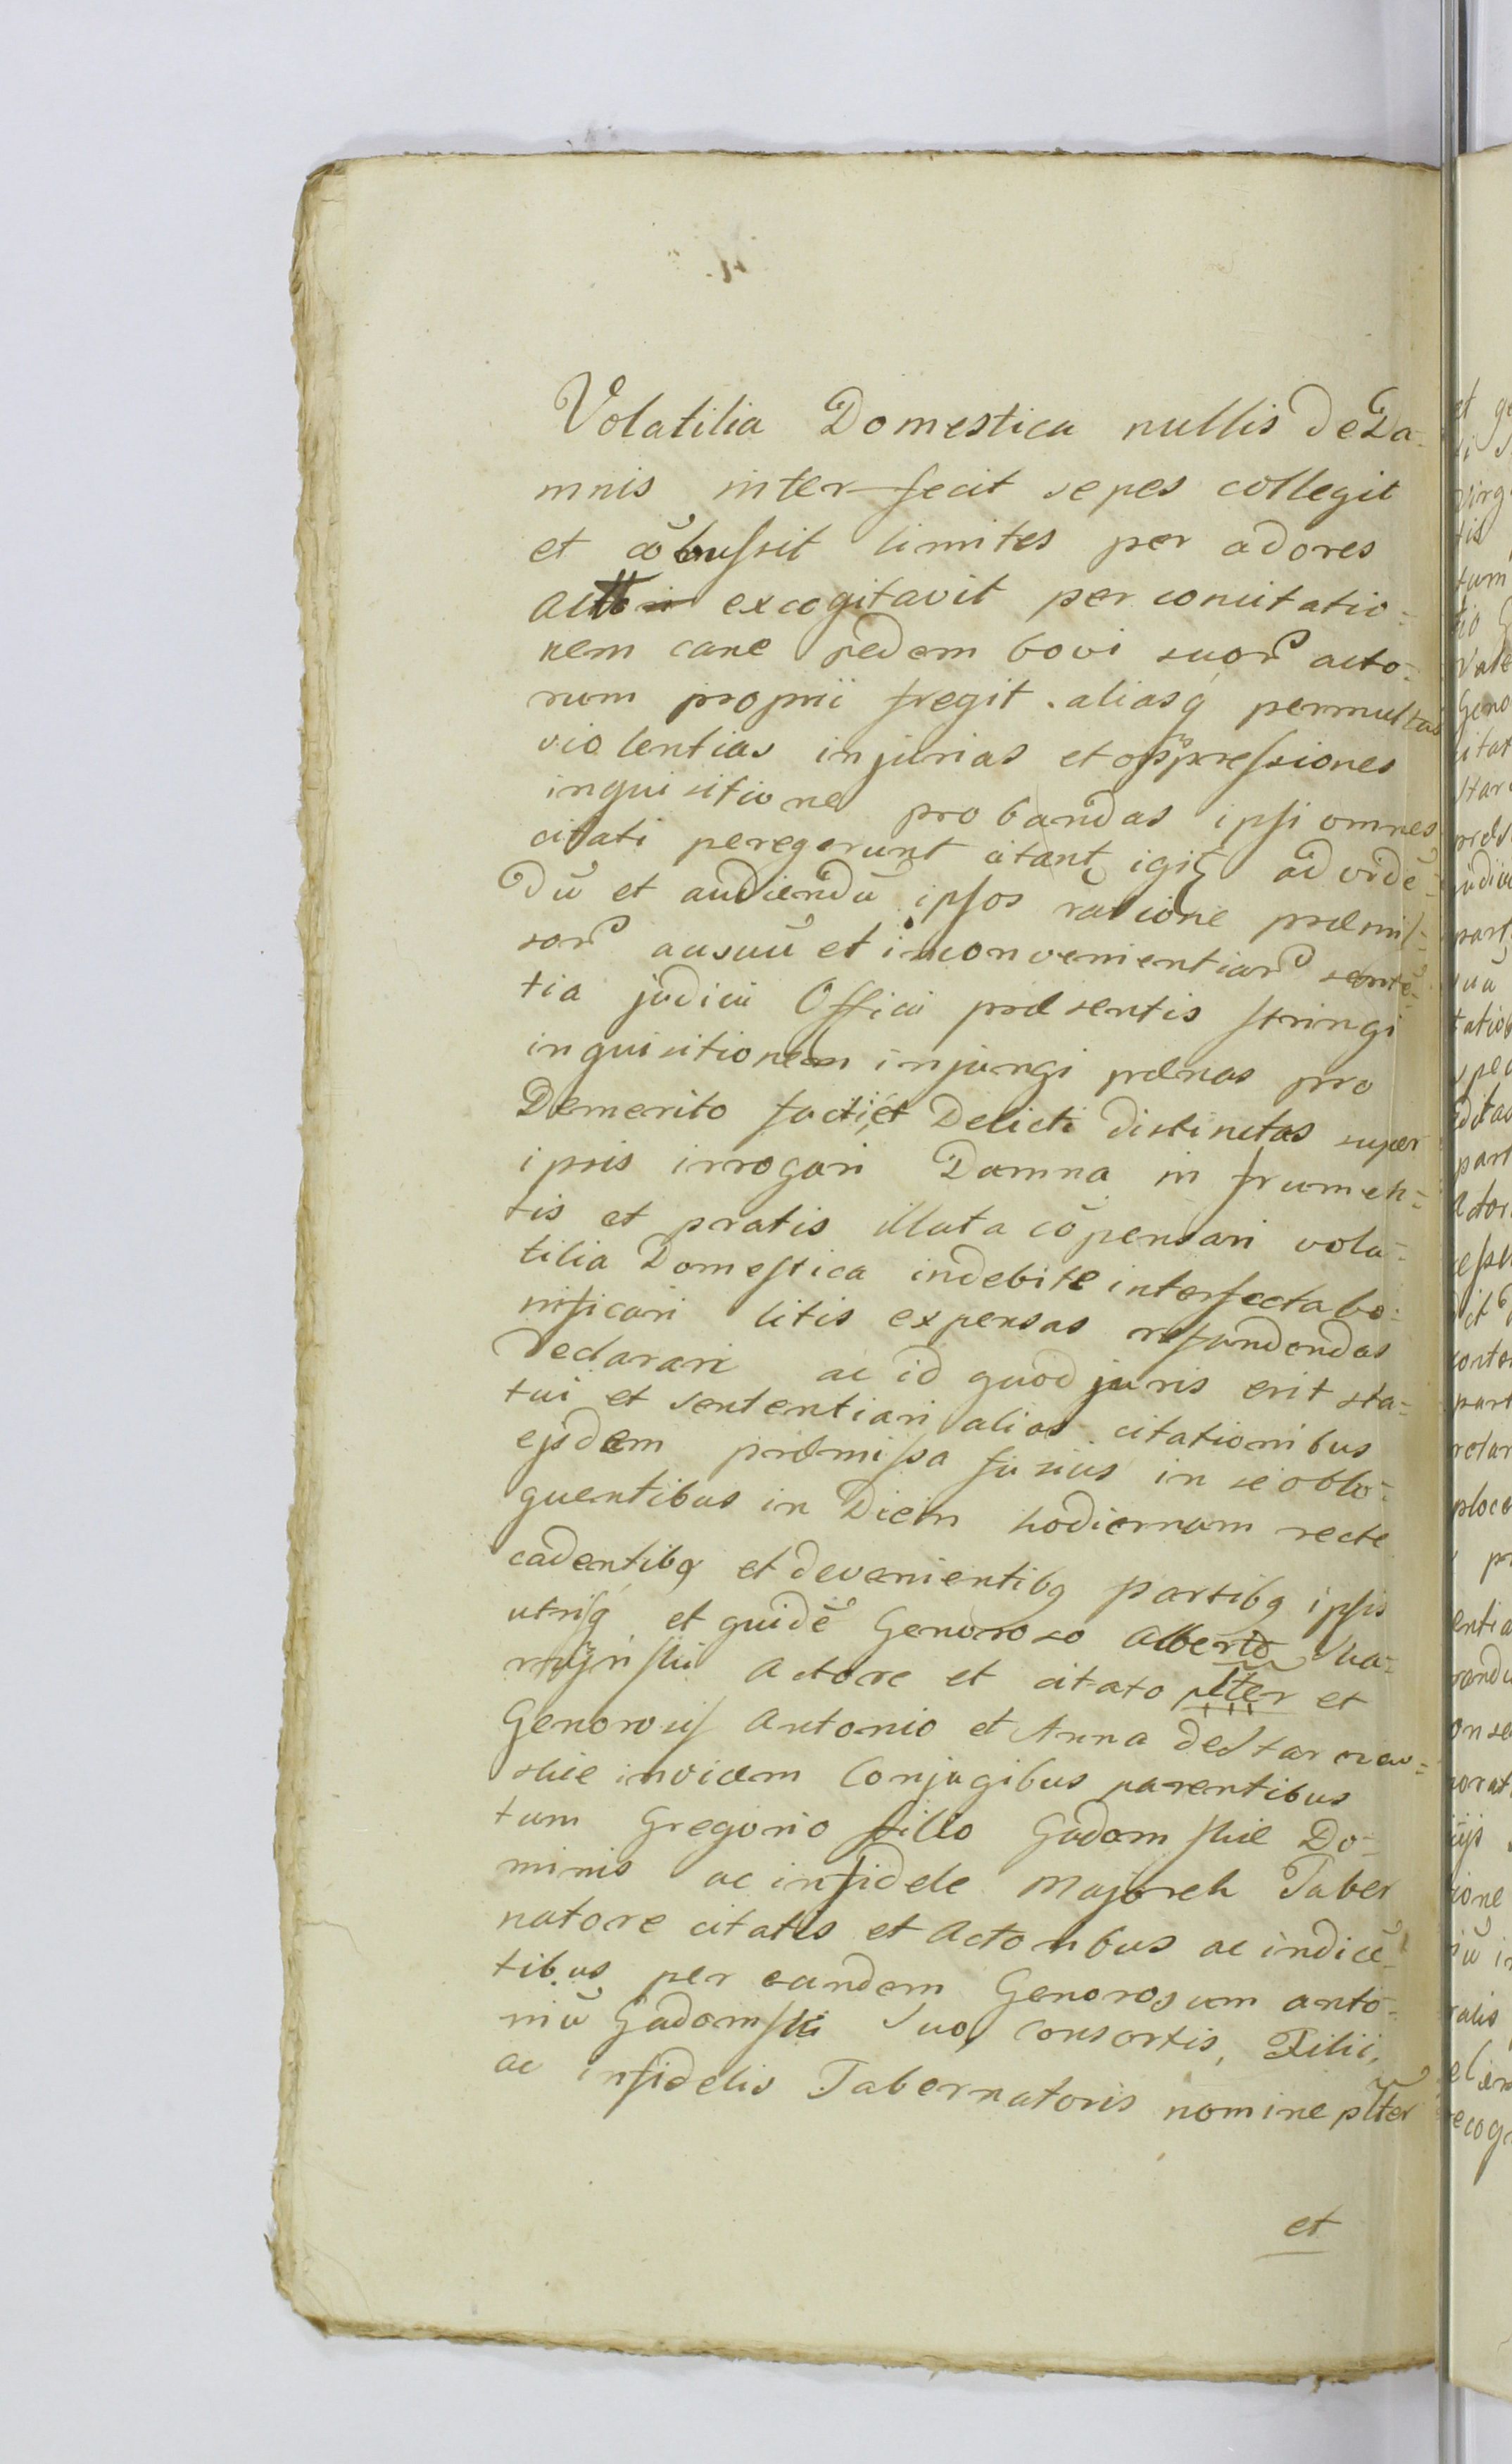 Volatilia Domestica nullis de Da-
mnis interfecit sepes collegit
et cōbuſsit limites per adores
excogitavit per concitatio=
nem cane pedem bovi suor acto=
rum proprii fregit . aliasq permultas
violentias injurias et oppreſsiones
inquisitione probandas ipſi omnes
citati peregerunt citant igit ad vidē=
dū et audiendū ipſos ratione præmiſ=
sor ausuū et inconvenientiar sentē=
tia judicii Officii præsentis ſtringi
inquisitionem injungi pænas pro
Demerito facti, et Delicti distinctas super
ipsis irrogari Damna in frumen=
tis et pratis illata cōpensari vola=
tilia Domeſtica indebite interfecta bo=
nificari litis expensas refundendas
declarari ac id quod juris erit sta=
tui et sententiari alias citationibus
ejsdem præmiſsa fusius in se oblo=
quentibus in Diem hodiernam recte
cadentibq et devenientibq partibq ipſis
utriſq et quidē Generoso Alberto Ska=
Actore et citato plter et
Generosiſ Antonio et Anna de Starczew=
skie invicem Conjugibus parentibus
tum Gregorio filio Gadomſkie Do=
minis ac infidele Majorek Taber
natore citatis et Actoribus ac indicē=
tibus per eundem Generosum Anto=
niū Gadomſki Suo, Consortis, Filii,
ac infidelis Tabernatoris nomine plter
et